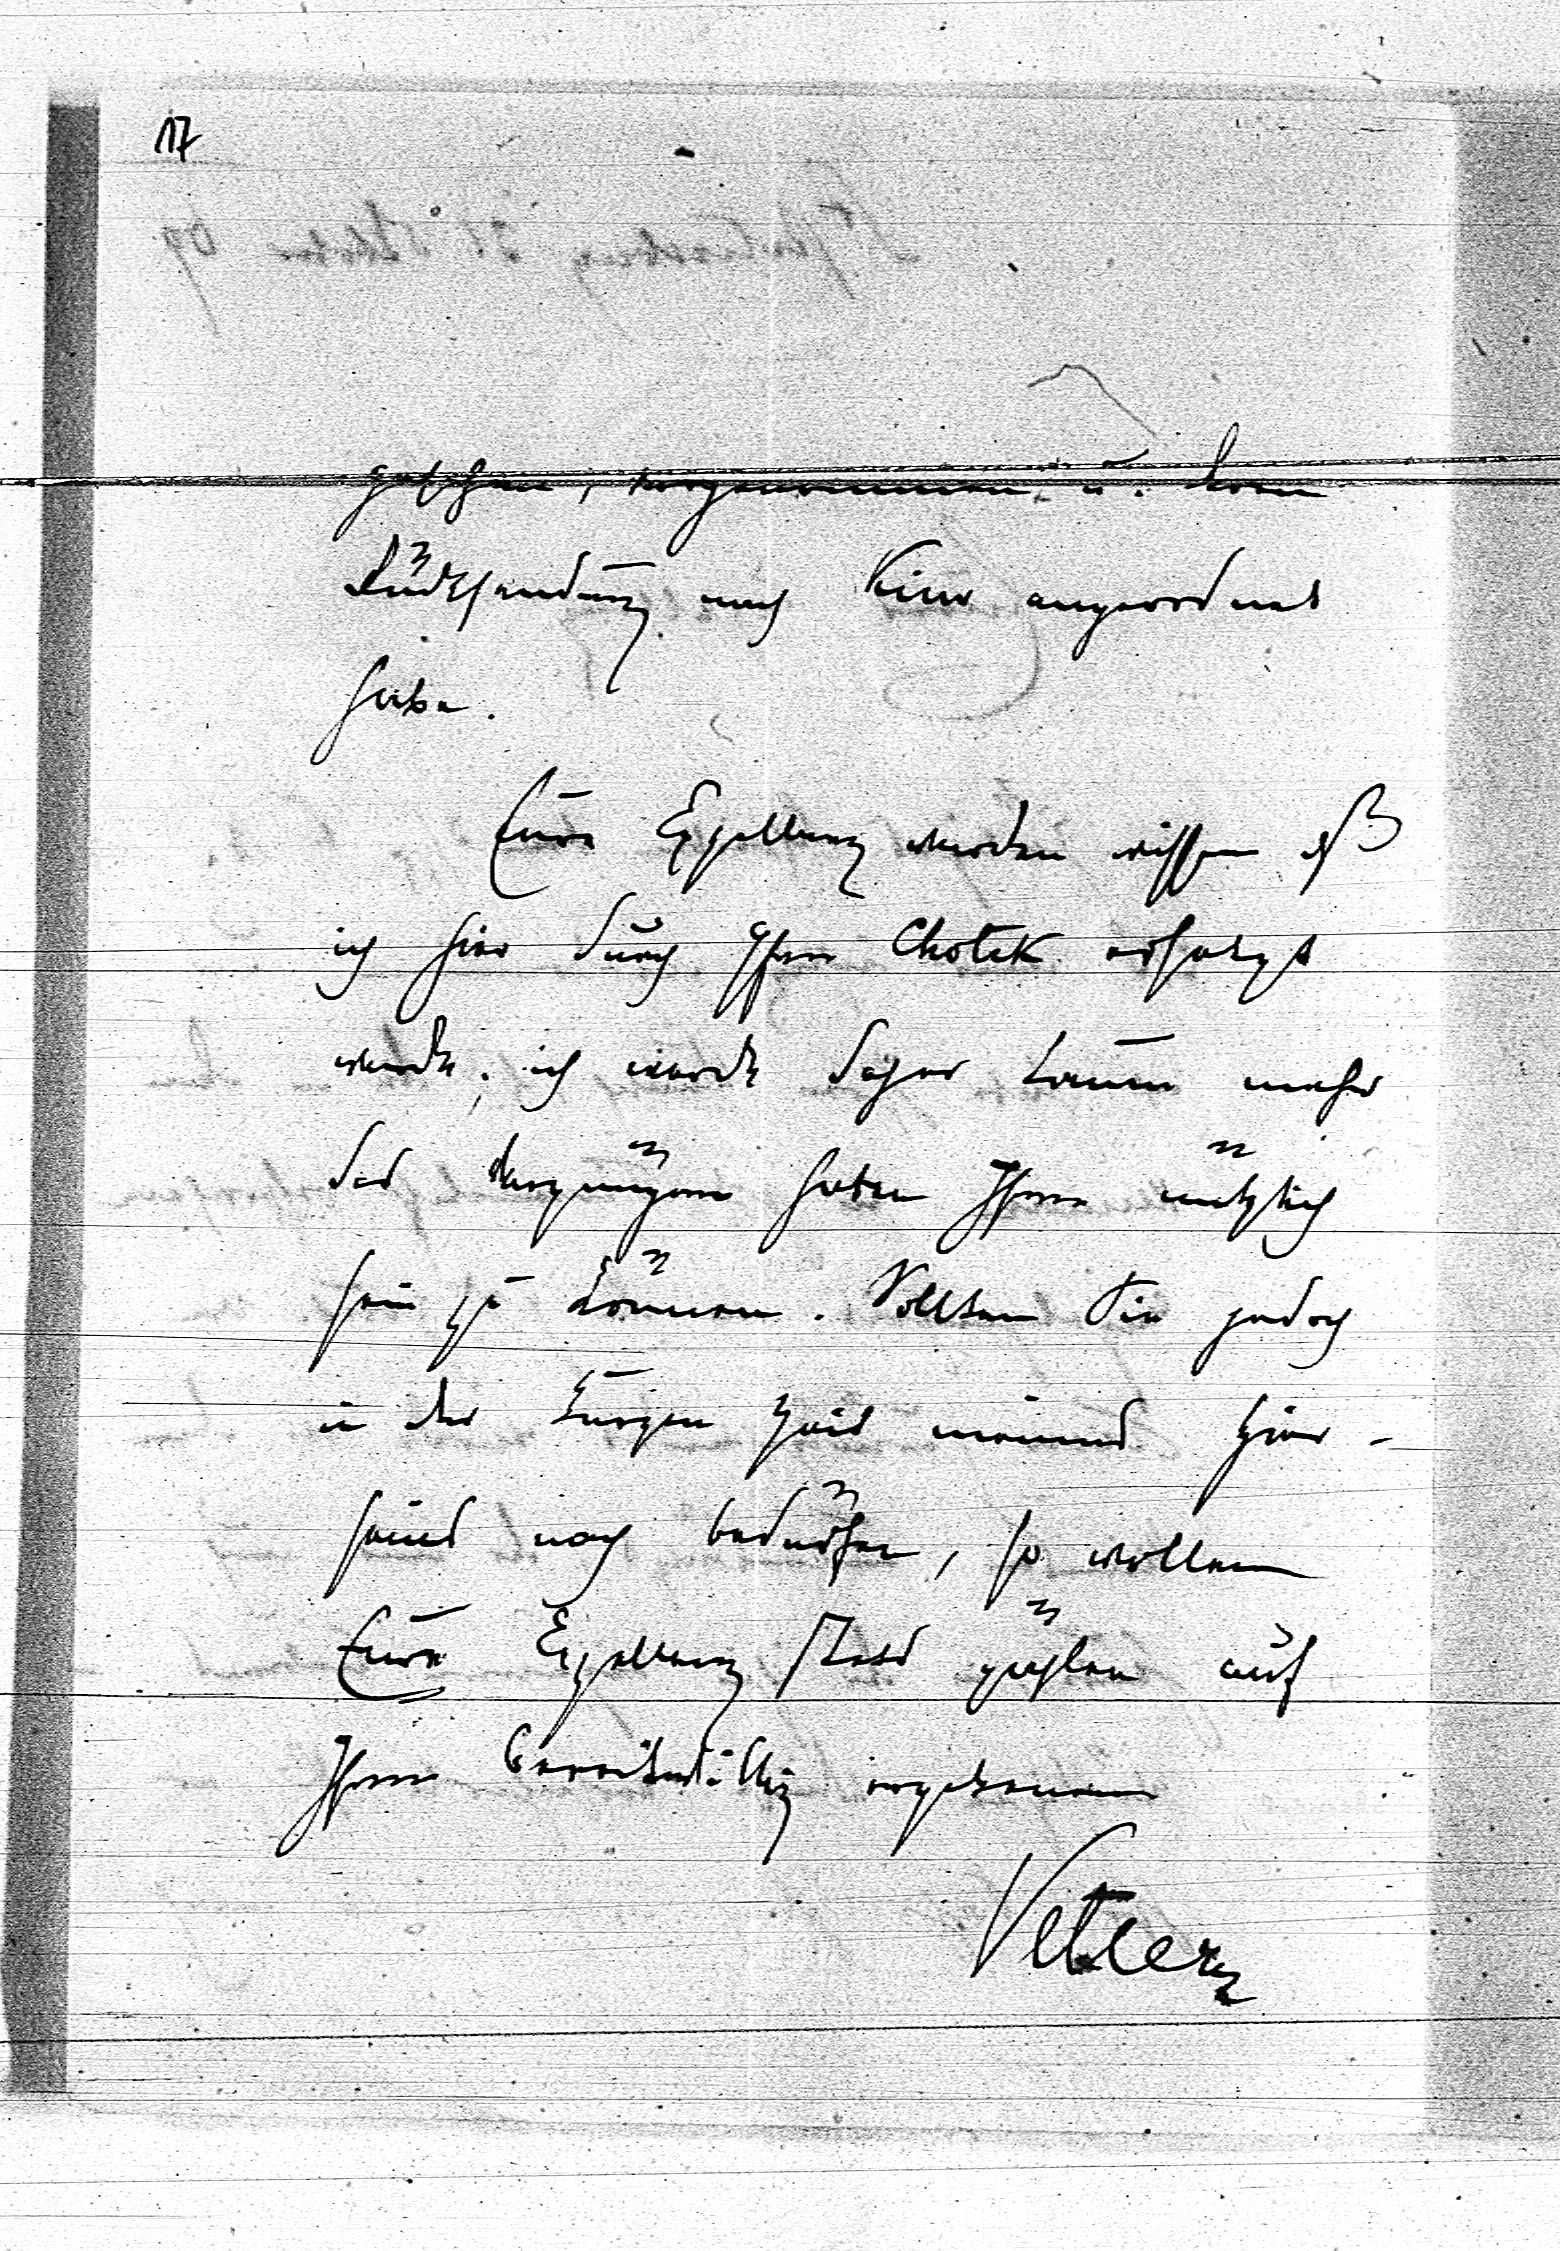 17
gebeten, vorgenommen u. deren
Rücksendung nach Kiew angeordnet
habe.
Eure Exzellenz werden wissen dß
ich hier durch Ghfen Chotek ersetzt
werde; ich werde daher kaum mehr
das Vergnügen haben Ihnen nützlich
sein zu können. Sollten Sie jedoch
in der kurzen Zeit meines Hier-
seins noch bedürfen, so wollen
Eure Exzellenz stets zählen auf
Ihren bereitwillig ergebenen
Vetsera